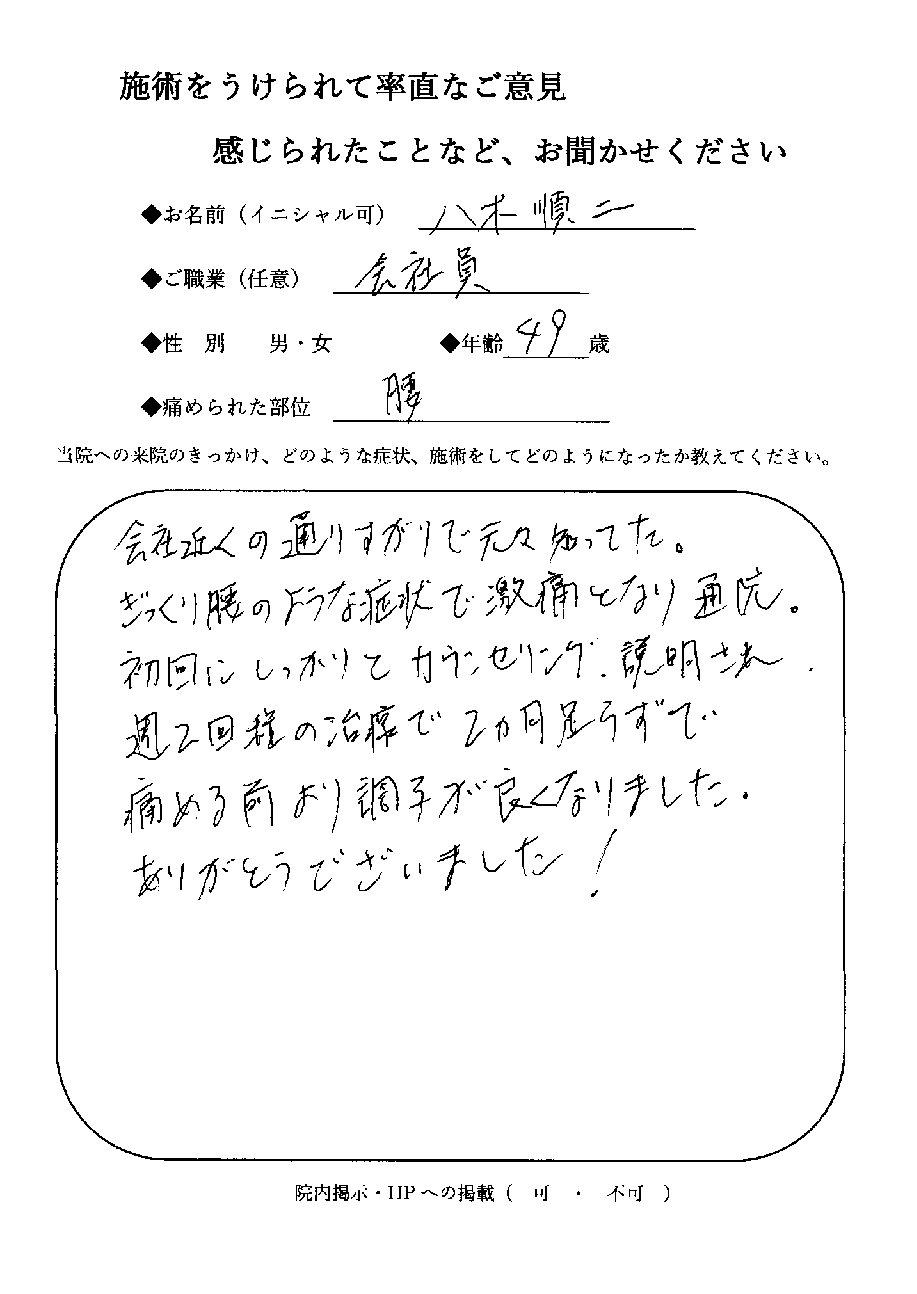 施術をうけられて率直なご意見
感じられたことなど、お聞かせください
◆お名前（イニシャル可） 八木 順二
◆ご職業（任意） 会社員
◆性 別 男・女 ◆年齢 49 歳
◆痛められた部位 腰
当院への来院のきっかけ、どのような症状、施術をしてどのようになったか教えてください。
会社近くの通りすがりで元々知ってた。
ぎっくり腰のような症状で激痛となり通院。
初回にしっかりとカウンセリング、説明され、
週2回程の治療で2カ月足らずで
痛める前より調子が良くなりました。
ありがとうございました！
院内掲示・HPへの掲載（ 可 ・ 不可 ）